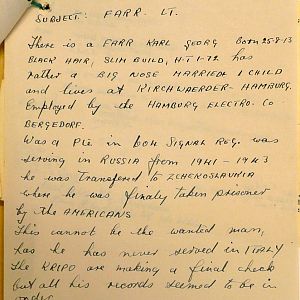 SUBJECT: FARR. LT.
There is a FARR KARL GEORG Born 25-8-13
BLACK HAIR, SLIM BUILD, H-T 1-72 has
rather a BIG NOSE MARRIED 1 CHILD
and lives at KIRCHWAERDER-HAMBURG.
Employed by the HAMBURG ELECTRO. Co
BERGEDORF.
Was a Pte in 604 SIGNAL REG. was
serving in RUSSIA from 1941-1943
he was Transfered to ZCHEKOSLAVKIA
where he was finaly taken prisoner
by the AMERICANS
This cannot be the wanted man,
has he has never served in ITALY
The KRIPO are making a final check
but all his records seemed to be in
order